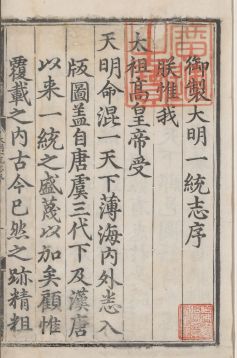 御製大明一統志序
朕惟我
太祖髙皇帝受
天明命混一天下薄海內外悉入
版圖盖自唐虞三代下及漢唐
以来一統之盛蔑以加矣顧惟
覆載之內古今已然之跡精粗